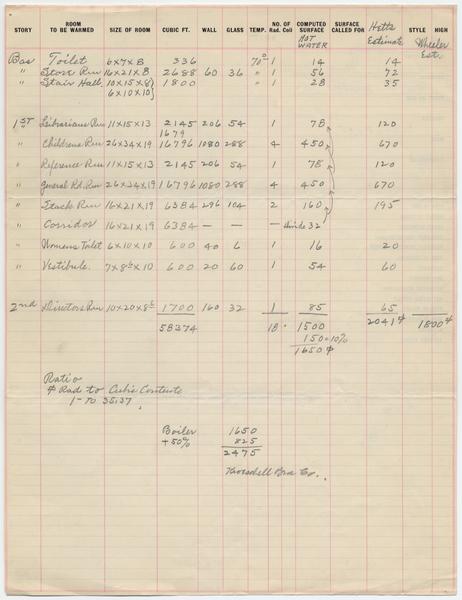 STORY ROOM TO BE WARMED SIZE OF ROOM CUBIC FT. WALL GLASS TEMP. NO. OF Rad. Coil COMPUTED SURFACE SURFACE CALLED FOR Hetts Estimate STYLE HIGH
HOT WATER Wheeler Est.
Bas Toilet 6x7x8 336 70° 1 14 14
" Store Rm 16x21x8 2688 60 36 " 1 56 72
" Stair Hall 10x15x8 1800 1 28 35
6x10x10
1st Librarians Rm 11x15x13 2145 206 54 1 78 120
1679
" Childrens Rm 26x34x19 16796 1080 288 4 450 670
" Reference Rm 11x15x13 2145 206 54 1 78 120
" General Rd. Rm 26x34x19 16796 1080 288 4 450 670
" Stack Rm 16x21x19 6384 296 104 2 160 195
" Corridor 16x21x19 6384 — — — divide 32
" Womens Toilet 6x10x10 600 40 6 1 16 20
" Vestibule. 7x8⁶x10 600 20 60 1 54 60
2nd Directors Rm 10x20x8⁶ 1700 160 32 1 85 65
58374 18 1500 2041 1800
150=10%
1650
Ratio
Rad to Cubic Contents
1-To 35.37
Boiler 1650
+50% 825
2475
Bros Co.